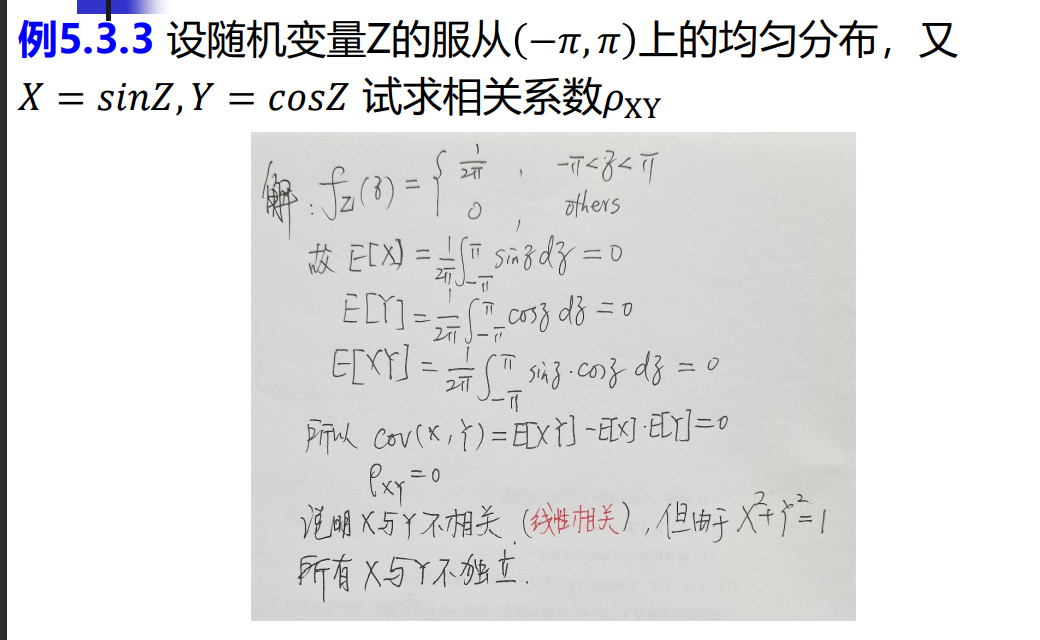 例5.3.3 设随机变量Z的服从(−π,π)上的均匀分布，又
X = sinZ,Y = cosZ 试求相关系数ρXY
解: fZ(z) = { 1/2π , -π<z<π
0 , others
故 E[X] = 1/2π ∫_-π^π sinz dz = 0
E[Y] = 1/2π ∫_-π^π cosz dz = 0
E[XY] = 1/2π ∫_-π^π sinz·cosz dz = 0
所以 cov(X,Y) = E[XY] - E[X]·E[Y] = 0
ρXY = 0
说明X与Y不相关 (线性相关), 但由于 X²+Y²=1
所有 X与Y不独立.